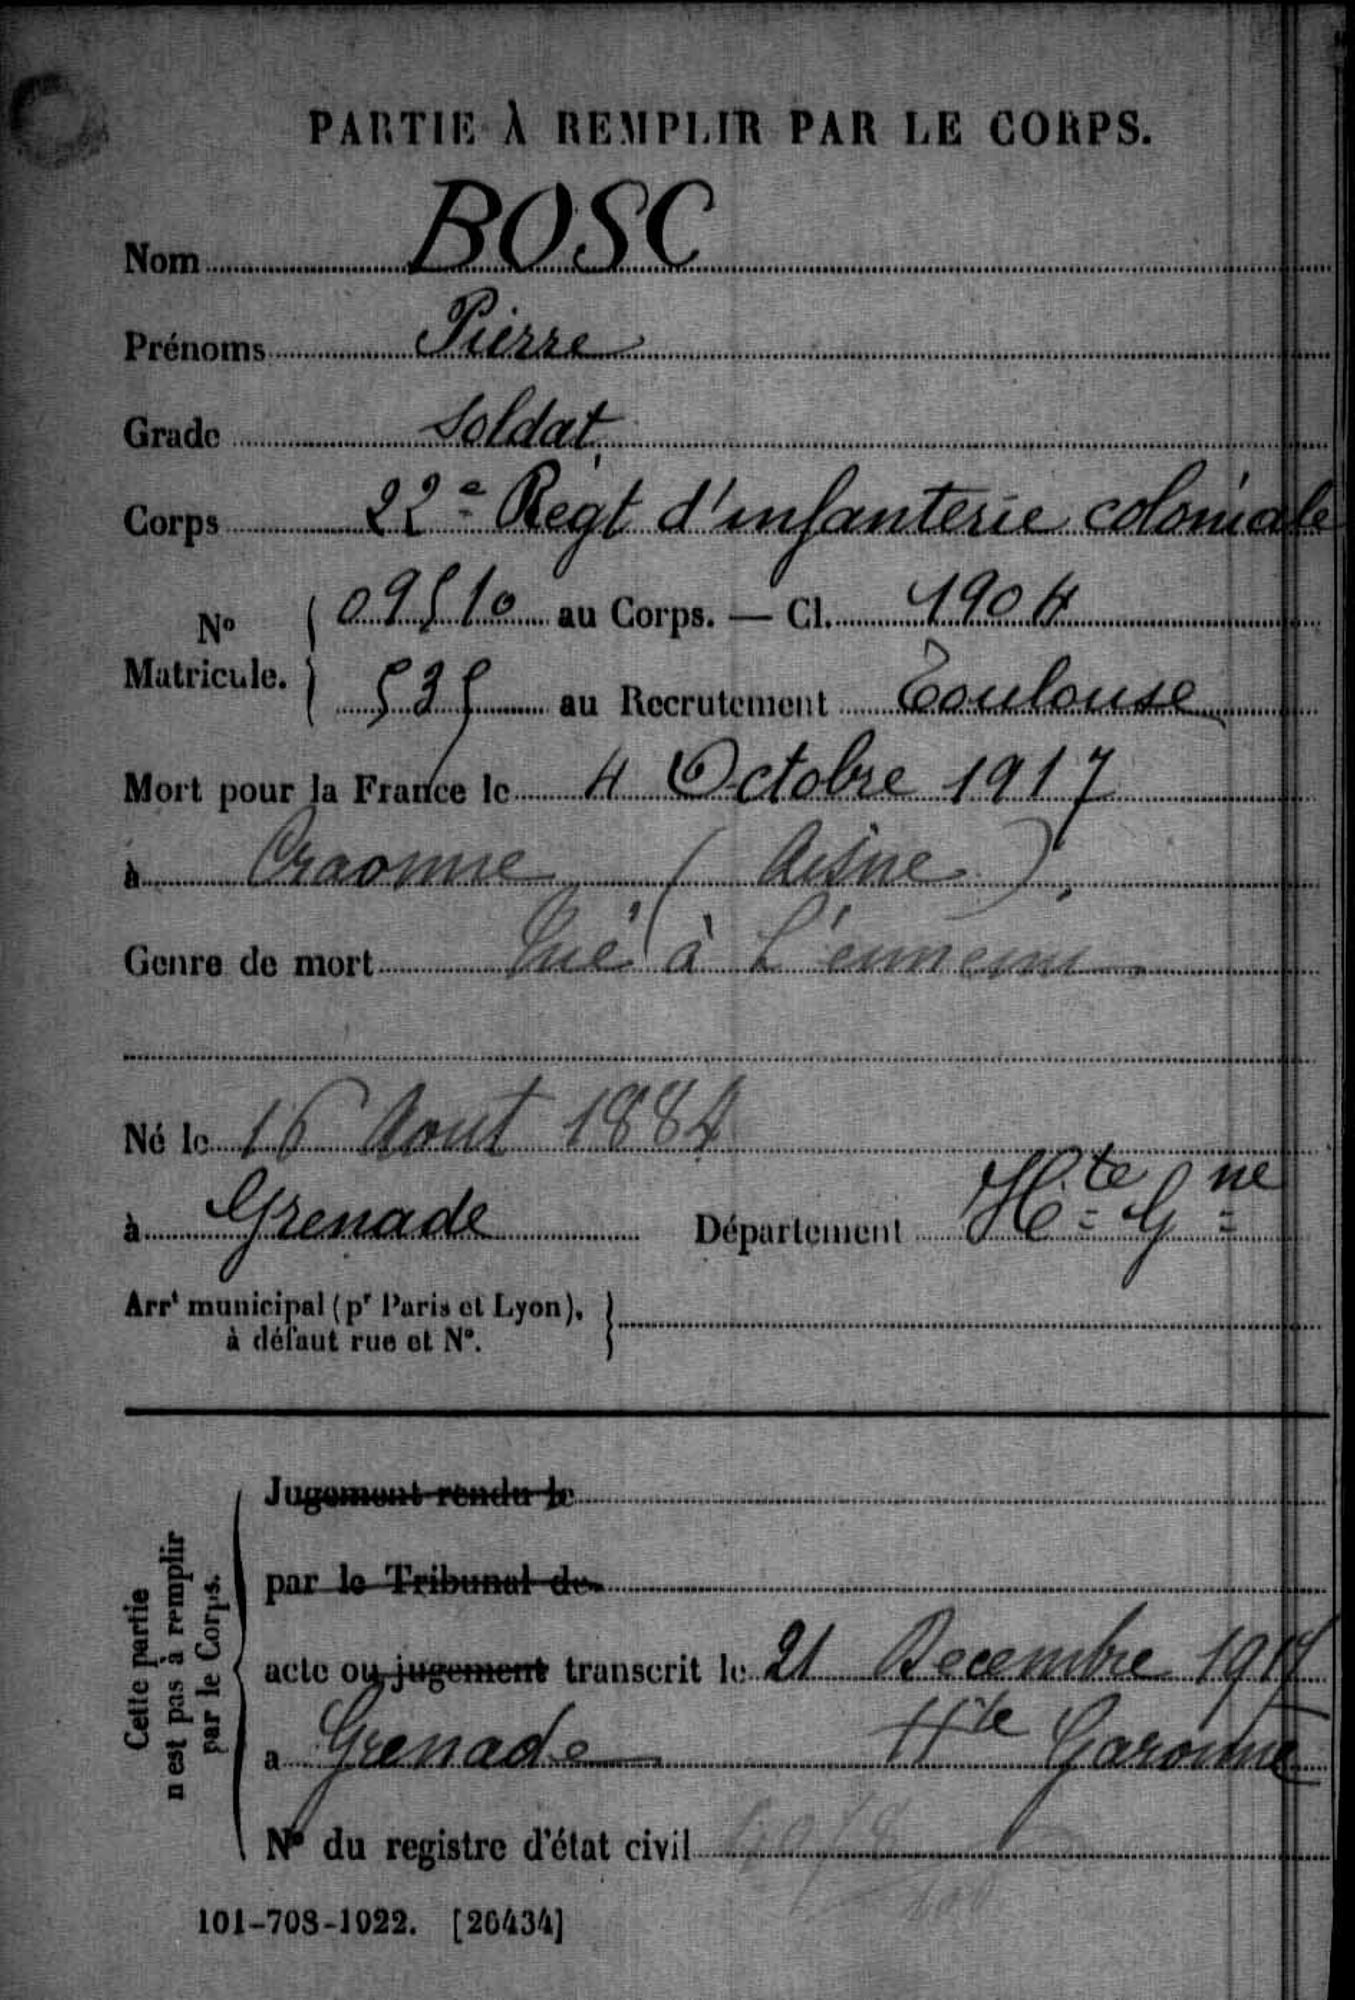 PARTIE À REMPLIR PAR LE CORPS.
Nom BOSC
Prénoms Pierre
Grade Soldat
Corps 22e Régt d'infanterie coloniale
No Matricule. 09510 au Corps. — Cl. 1904
535 au Recrutement Toulouse
Mort pour la France le 4 Octobre 1917
à Craonne (Aisne).
Genre de mort Tué à l'ennemi.
Né le 16 Aout 1884
à Grenade Département Hte Gne
Arrt municipal (pr Paris et Lyon),
à défaut rue et No.
Cette partie
n'est pas à remplir
par le Corps.
Jugement rendu le
par le Tribunal de
acte ou jugement transcrit le 21 Decembre 1917
a Grenade Hte Garonne
No du registre d'état civil
101-708-1922. [26434]